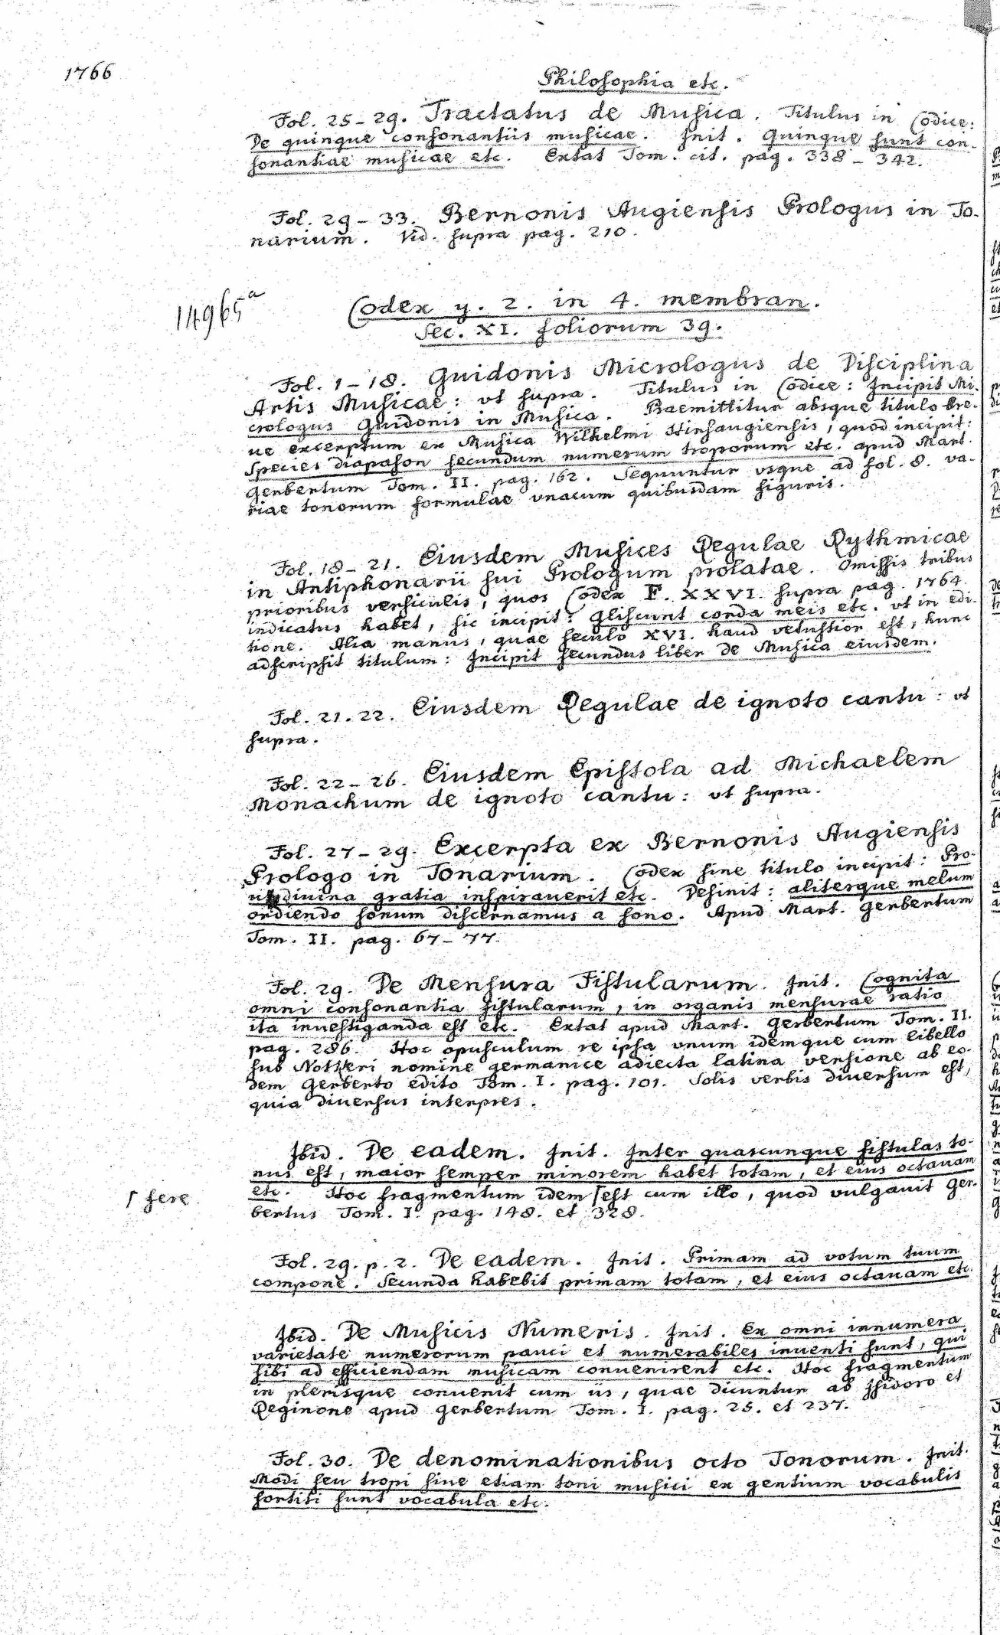 1766
Philosophia etc.
Fol. 25-29. Tractatus de Musica. Titulus in Codice:
De quinque consonantiis musicae. Init. Quinque sunt con-
sonantiae musicae etc. Extat Tom. cit. pag. 338-342.
Fol. 29-33. Bernonis Augiensis Prologus in To-
narium. Vid. supra pag. 210.
14965a
Codex y. 2. in 4. membran.
Sec. XI. foliorum 39.
Fol. 1-18. Guidonis Micrologus de Disciplina
Artis Musicae: vt supra. Titulus in Codice: Incipit Mi-
crologus Guidonis in Musica. Praemittitur absque titulo bre-
ue excerptum ex Musica Wilhelmi Hirsaugiensis, quod incipit:
Species diapason secundum numerum troporum etc. apud Mart.
Gerbertum Tom. II. pag. 162. Sequuntur vsque ad fol. 8. va-
riae tonorum formulae vnacum quibusdam figuris.
Fol. 18-21. Eiusdem Musices Regulae Rythmicae
in Antiphonarii sui Prologum prolatae. Omissis tribus
prioribus versiculis, quos Codex F. XXVI. supra pag. 1764
indicatus habet, sic incipit: Gliscunt corda meis etc. vt in edi-
tione. Alia manus, quae seculo XVI. haud vetustior est, hunc
adscripsit titulum: Incipit secundus liber de Musica eiusdem.
Fol. 21.22. Eiusdem Regulae de ignoto cantu: vt
supra.
Fol. 22-26. Eiusdem Epistola ad Michaelem
Monachum de ignoto cantu: vt supra.
Fol. 27-29. Excerpta ex Bernonis Augiensis
Prologo in Tonarium. Codex sine titulo incipit: Pro-
ut divina gratia inspirauerit etc. Desinit: aliterque melum
ordiendo sonum discernamus a sono. Apud Mart. Gerbertum
Tom. II. pag. 67-77.
Fol. 29. De Mensura Fistularum. Init. Cognita
omni consonantia fistularum, in organis mensurae ratio
ita inuestiganda est etc. Extat apud Mart. Gerbertum Tom. II.
pag. 286. Hoc opusculum re ipsa vnum idemque cum libello
sub Notkeri nomine germanice adiecta latina versione ab eo-
dem Gerberto edito Tom. I. pag. 101. Solis verbis diuersum est,
quia diuersus interpres.
Ibid. De eadem. Init. Inter quascunque fistulas to-
nus est, maior semper minorem habet totam, et eius octauam
etc. Hoc fragmentum idem ſ est cum illo, quod vulgauit Ger-
ſ fere
bertus Tom. I. pag. 148. et 328.
Fol. 29. p. 2. De eadem. Init. Primam ad votum tuum
compone. Secunda habebit primam totam, et eius octauam etc.
Ibid. De Musicis Numeris. Init. Ex omni innumera
varietate numerorum pauci et numerabiles inuenti sunt, qui
sibi ad efficiendam musicam conuenirent etc. Hoc fragmentum
in plerisque conuenit cum iis, quae dicuntur ab Isidoro et
Reginone apud Gerbertum Tom. I. pag. 25. et 237.
Fol. 30. De denominationibus octo Tonorum. Init.
Modi seu tropi siue etiam toni musici ex gentium vocabulis
sortiti sunt vocabula etc.